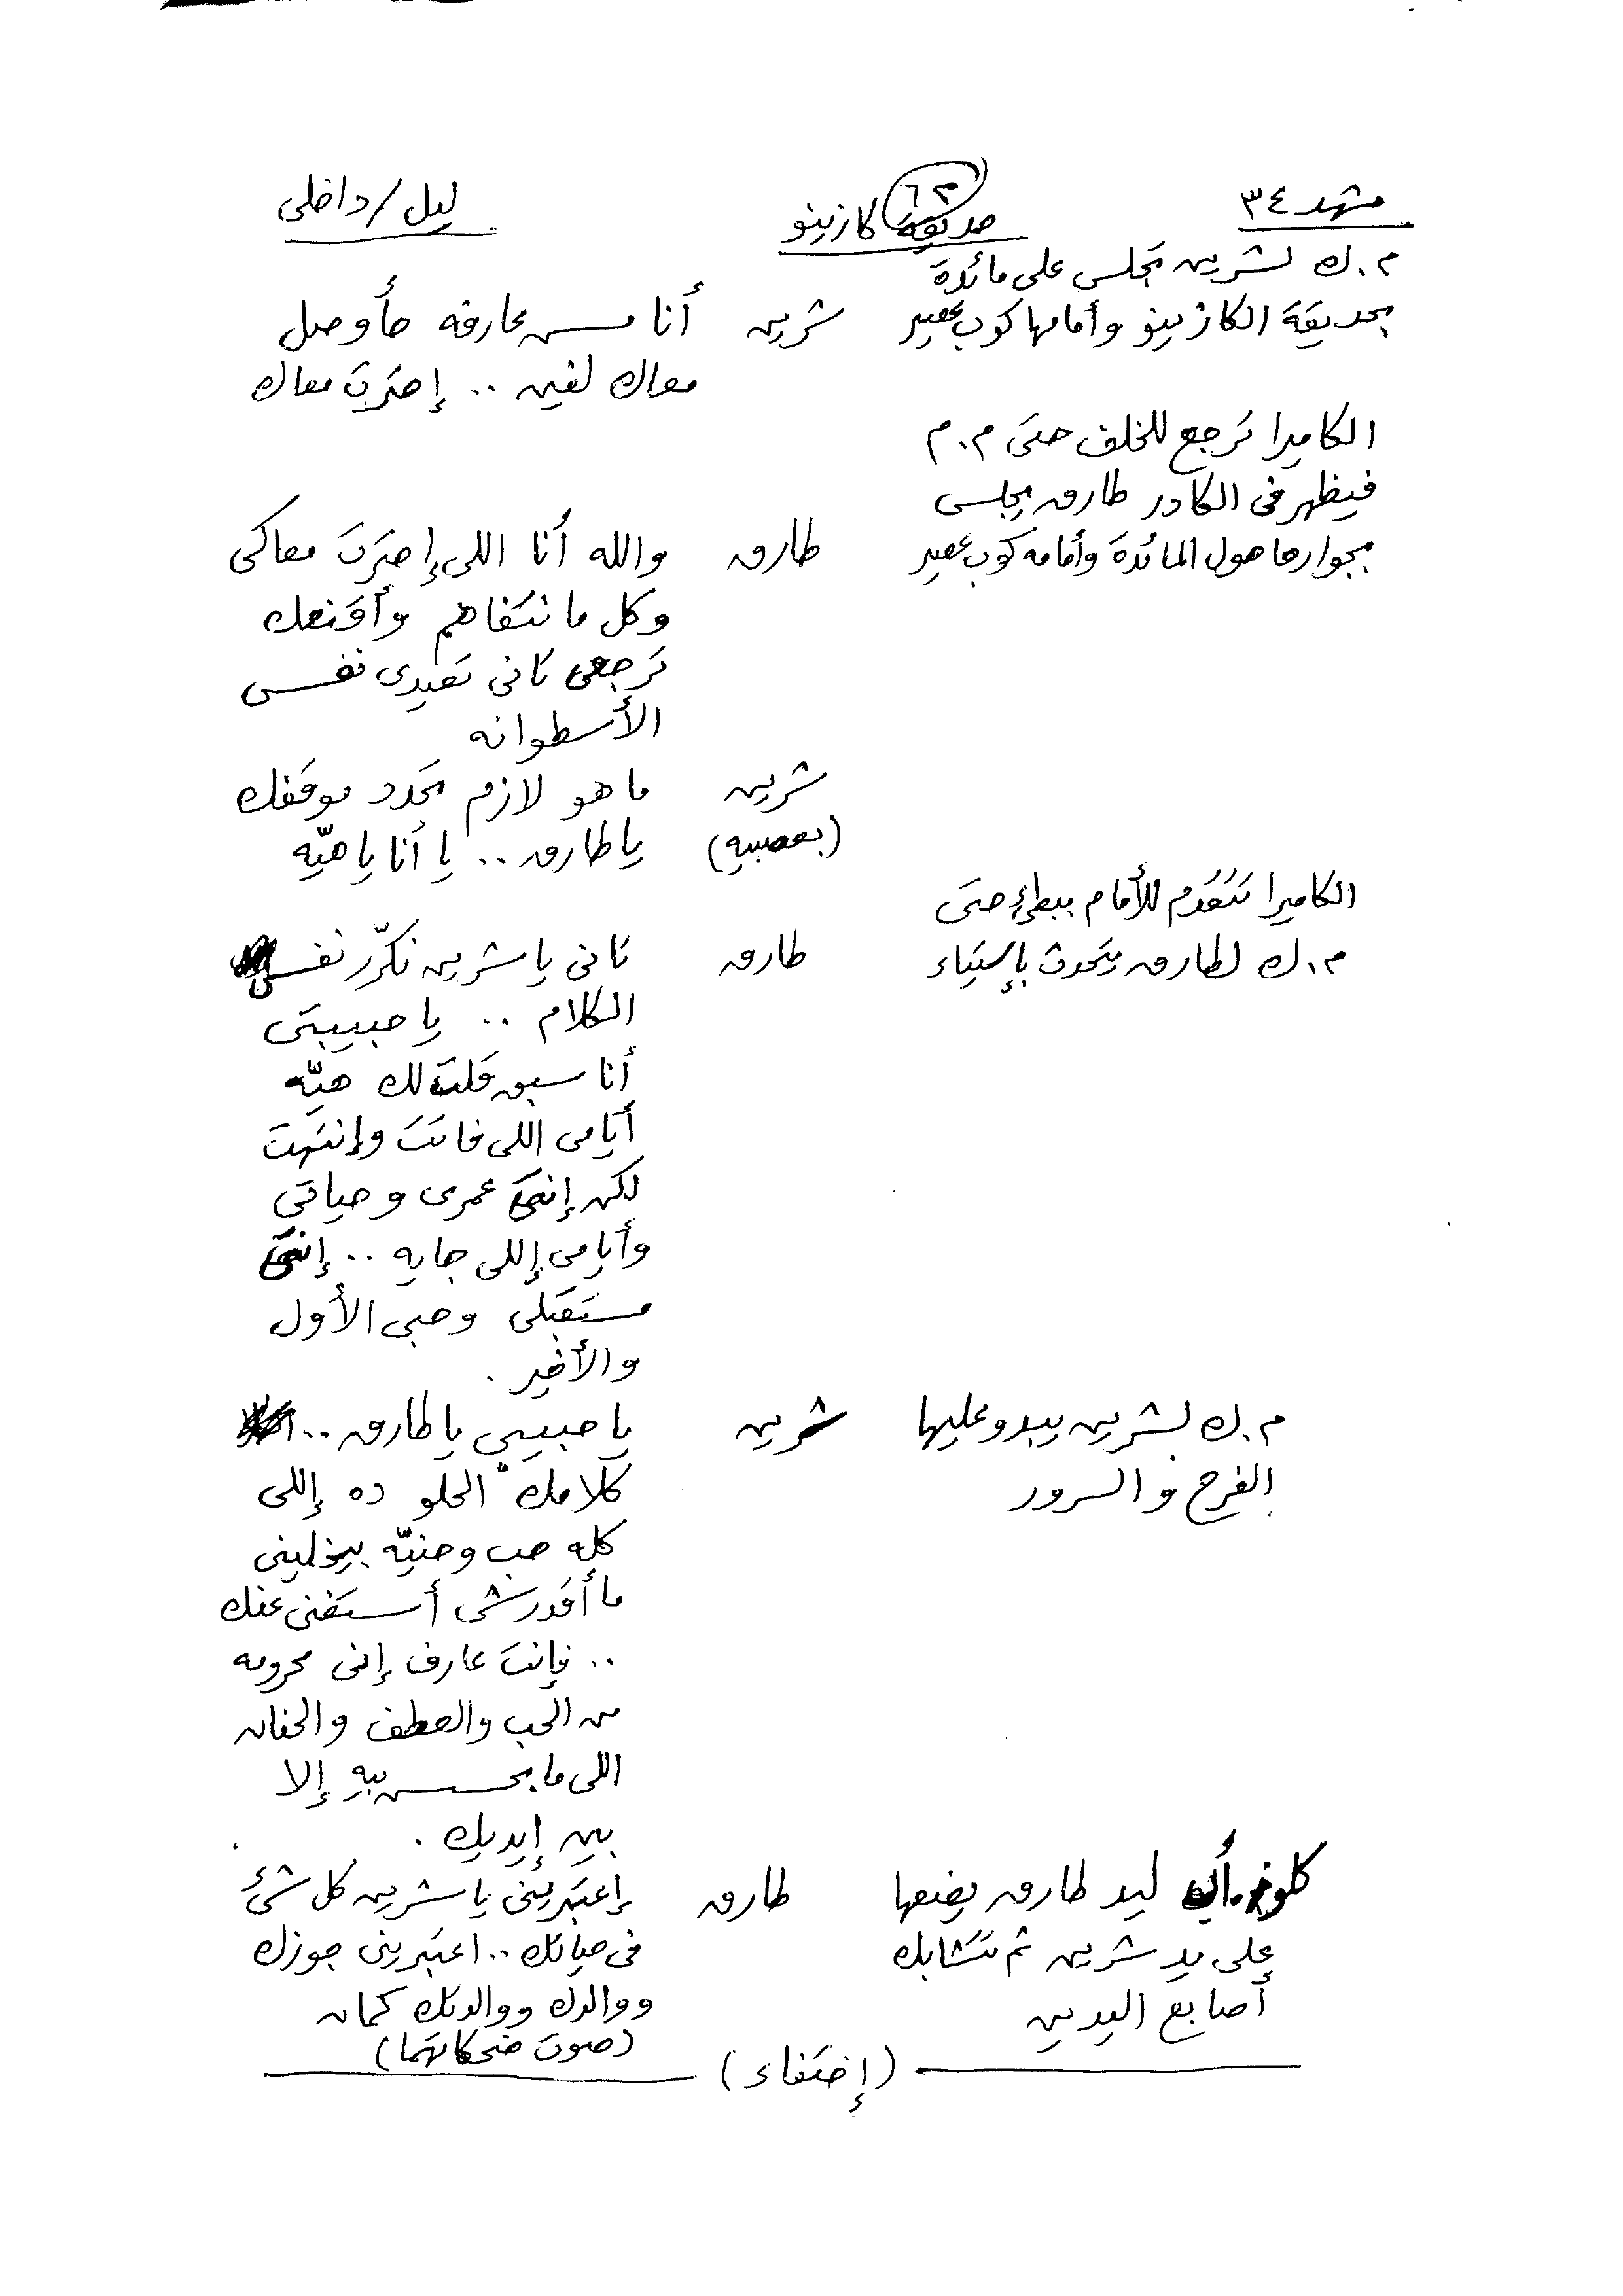 ٦٢
مشهد ٣٤
حديقة كازينو
ليل/داخلى
م.ك لشرين تجلس على مائدة
بحديقة الكازينو وأمامها كوب عصير
شرين
أنا مش عارفه حأوصل
معاك لفين .. إحترت معاك
الكاميرا ترجع للخلف حتى م.م
فيظهر فى الكادر طارق يجلس
بجوارها حول المائدة وأمامه كوب عصير
طارق
والله أنا اللى إحترت معاكى
وكل ما نتفاهم وأقنعك
ترجعى تانى تعيدى نفس
الأسطوانه
شرين
(بعصبيه)
ما هو لازم تحدد موقفك
يا طارق .. يا أنا يا هيّه
الكاميرا تتقدم للأمام ببطئ حتى
م.ك لطارق يتحدث بإستياء
طارق
تانى يا شرين نكرّر نفس
الكلام .. يا حبيبتى
أنا سبق قلت لك هيّه
أيامى اللى فاتت وإنتهت
لكن إنتى عمرى وحياتى
وأيامى إللى جايه .. إنتى
مستقبلى وحبى الأول
والأخير .
م.ك لشرين يبدو عليها
الفرح والسرور
شرين
يا حبيبي يا طارق ..
كلامك الحلو ده إللى
كله حب وحنيّه بيخلينى
ما أقدرشى أستغنى عنك
.. فإنت عارف إنى محرومه
من الحب والعطف والحنان
اللى ما بحس بيه إلا
بين إيديك .
كلوز ليد طارق يضعها
على يد شرين ثم تتشابك
أصابع اليدين
طارق
إعتبرينى يا شرين كل شئ
فى حياتك .. اعتبرينى جوزك
ووالدك ووالدتك كمان
(صوت ضحكاتهما)
(إختفاء)